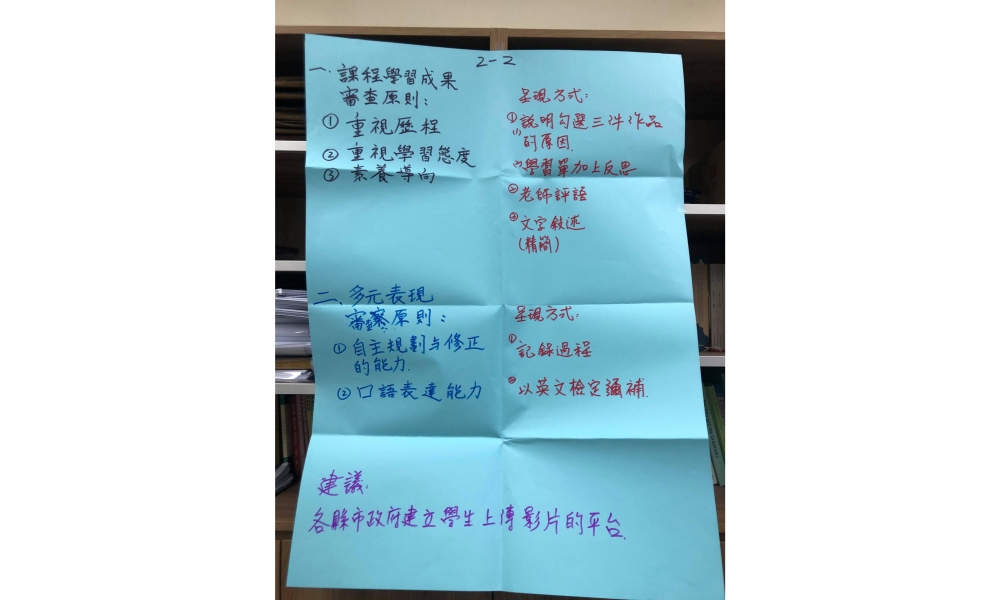 2-2
一、課程學習成果
審查原則：
① 重視歷程
② 重視學習態度
③ 素養導向
呈現方式：
①說明勾選三件作品
的原因.
學習單加上反思
老師評語
文字敘述
(精簡)
二、多元表現
審查原則：
① 自主規劃与修正
的能力.
② 口語表達能力
呈現方式：
① 記錄過程
② 以英文檢定彌補.
建議.
各縣市政府建立學生上傳影片的平台.